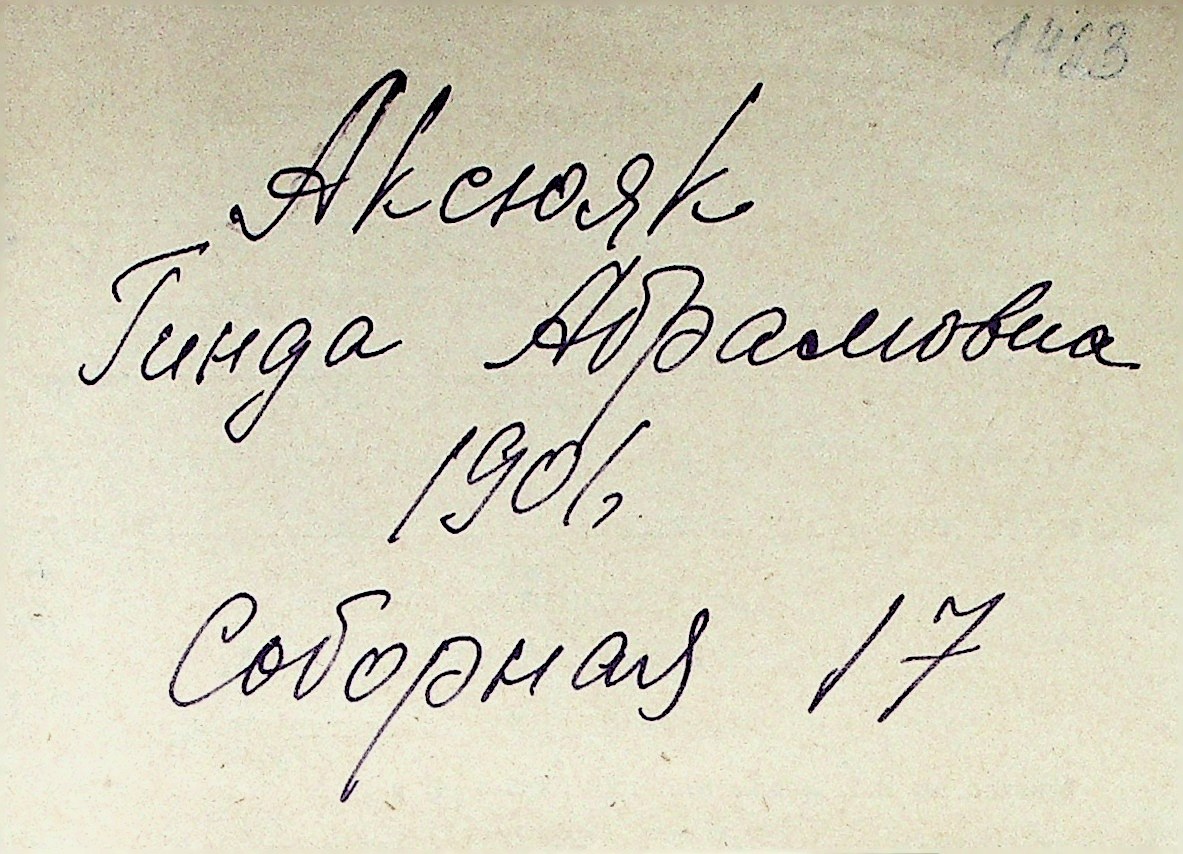 Аксюяк
Гинда Абрамовна
1901,
Соборная 17